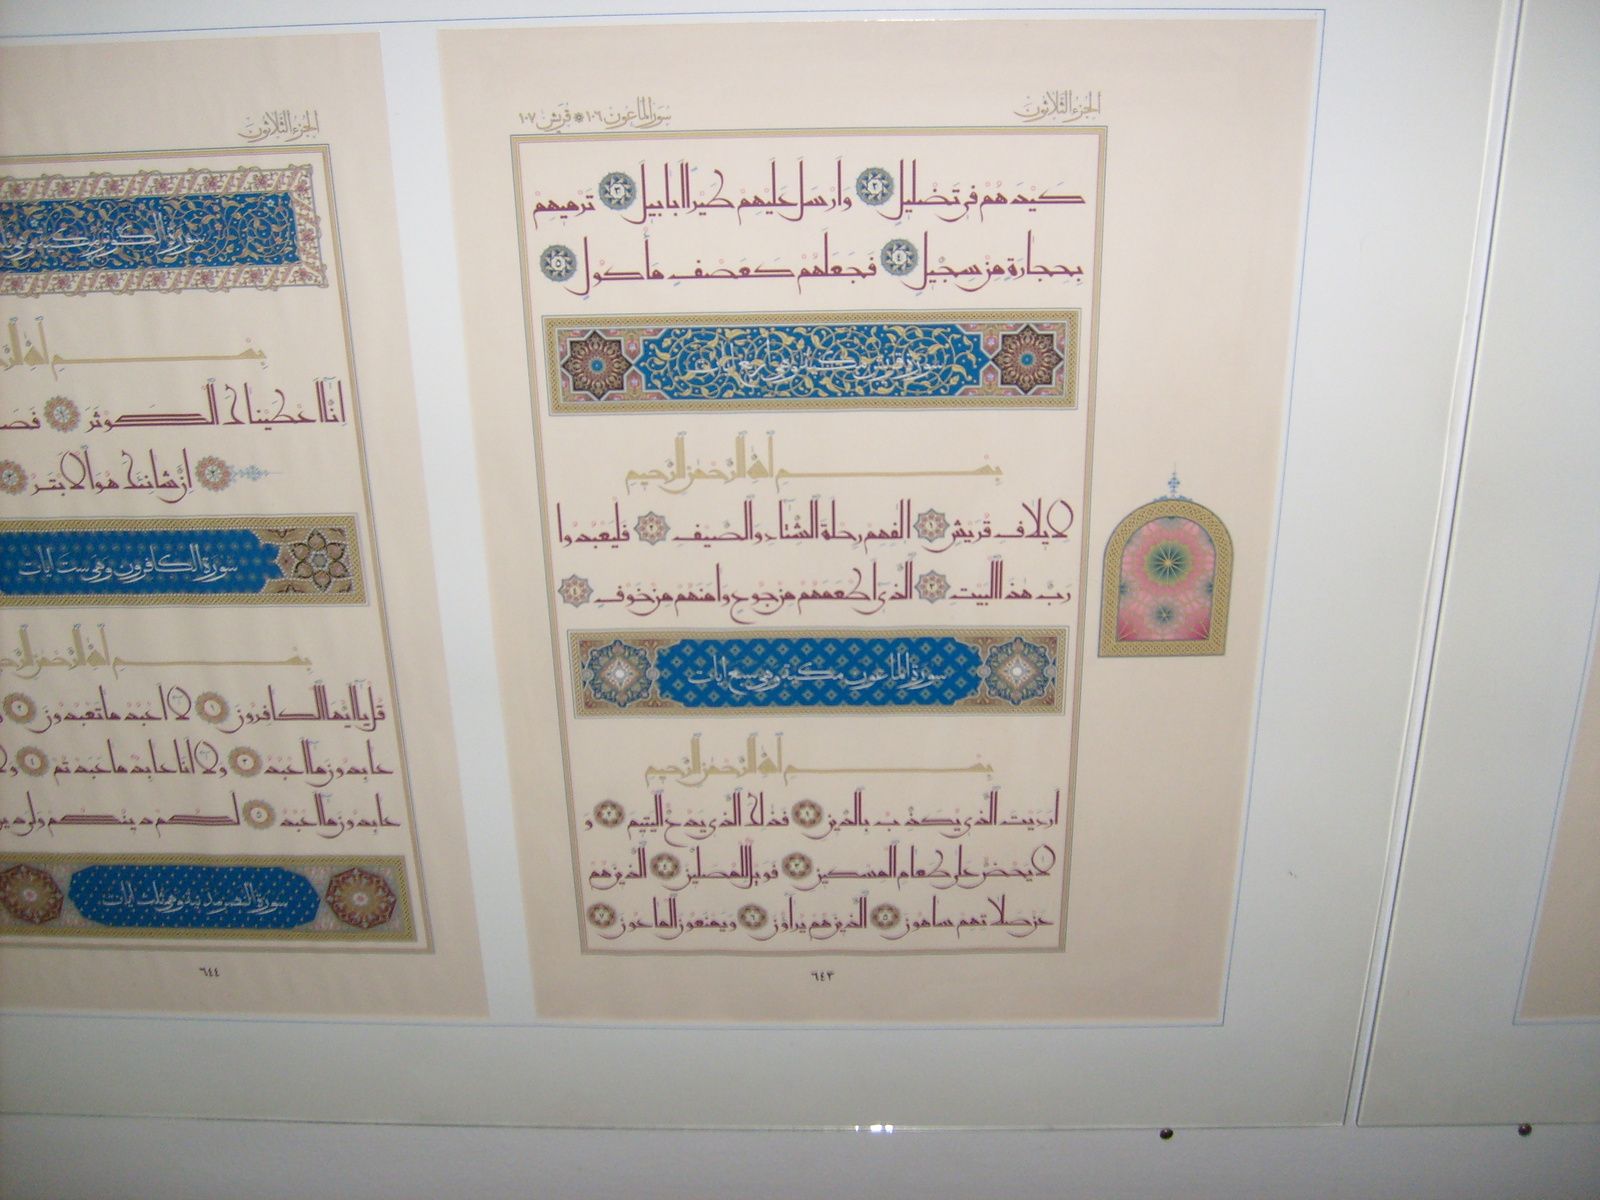 الجزء الثلاثون
سورة الماعون ١٠٦ * قريش ١٠٧
كَيْدَهُمْ فِي تَضْلِيلٍ ٢ وَأَرْسَلَ عَلَيْهِمْ طَيْرًا أَبَابِيلَ ٣ تَرْمِيهِمْ
بِحِجَارَةٍ مِنْ سِجِّيلٍ ٤ فَجَعَلَهُمْ كَعَصْفٍ مَأْكُولٍ ٥
سورة قريش مكية وهي أربع آيات
بِسْمِ اللَّهِ الرَّحْمَٰنِ الرَّحِيمِ
لِإِيلَافِ قُرَيْشٍ ١ إِلَٰفِهِمْ رِحْلَةَ الشِّتَاءِ وَالصَّيْفِ ٢ فَلْيَعْبُدُوا
رَبَّ هَٰذَا الْبَيْتِ ٣ الَّذِي أَطْعَمَهُمْ مِنْ جُوعٍ وَآمَنَهُمْ مِنْ خَوْفٍ ٤
سورة الماعون مكية وهي سبع آيات
بِسْمِ اللَّهِ الرَّحْمَٰنِ الرَّحِيمِ
أَرَءَيْتَ الَّذِي يُكَذِّبُ بِالدِّينِ ١ فَذَٰلِكَ الَّذِي يَدُعُّ الْيَتِيمَ ٢ وَ
لَا يَحُضُّ عَلَى طَعَامِ الْمِسْكِينِ ٣ فَوَيْلٌ لِلْمُصَلِّينَ ٤ الَّذِينَ هُمْ
عَنْ صَلَاتِهِمْ سَاهُونَ ٥ الَّذِينَ هُمْ يُرَاؤُنَ ٦ وَيَمْنَعُونَ الْمَاعُونَ ٧
٦٤٣
الجزء الثلاثون
سورة الكوثر مكية وهي
بِسْمِ اللَّهِ
إِنَّا أَعْطَيْنَاكَ الْكَوْثَرَ ١
إِنَّ شَانِئَكَ هُوَ الْأَبْتَرُ ٣
سورة الكافرون وهي ست آيات
بِسْمِ اللَّهِ الرَّحْمَٰنِ
قُلْ يَا أَيُّهَا الْكَافِرُونَ ١ لَا أَعْبُدُ مَا تَعْبُدُونَ ٢
عَابِدُونَ مَا أَعْبُدُ ٣ وَلَا أَنَا عَابِدٌ مَا عَبَدْتُمْ ٤
عَابِدُونَ مَا أَعْبُدُ ٥ لَكُمْ دِينُكُمْ وَلِيَ دِينِ
سورة النصر مدنية وهي ثلث آيات
٦٤٤